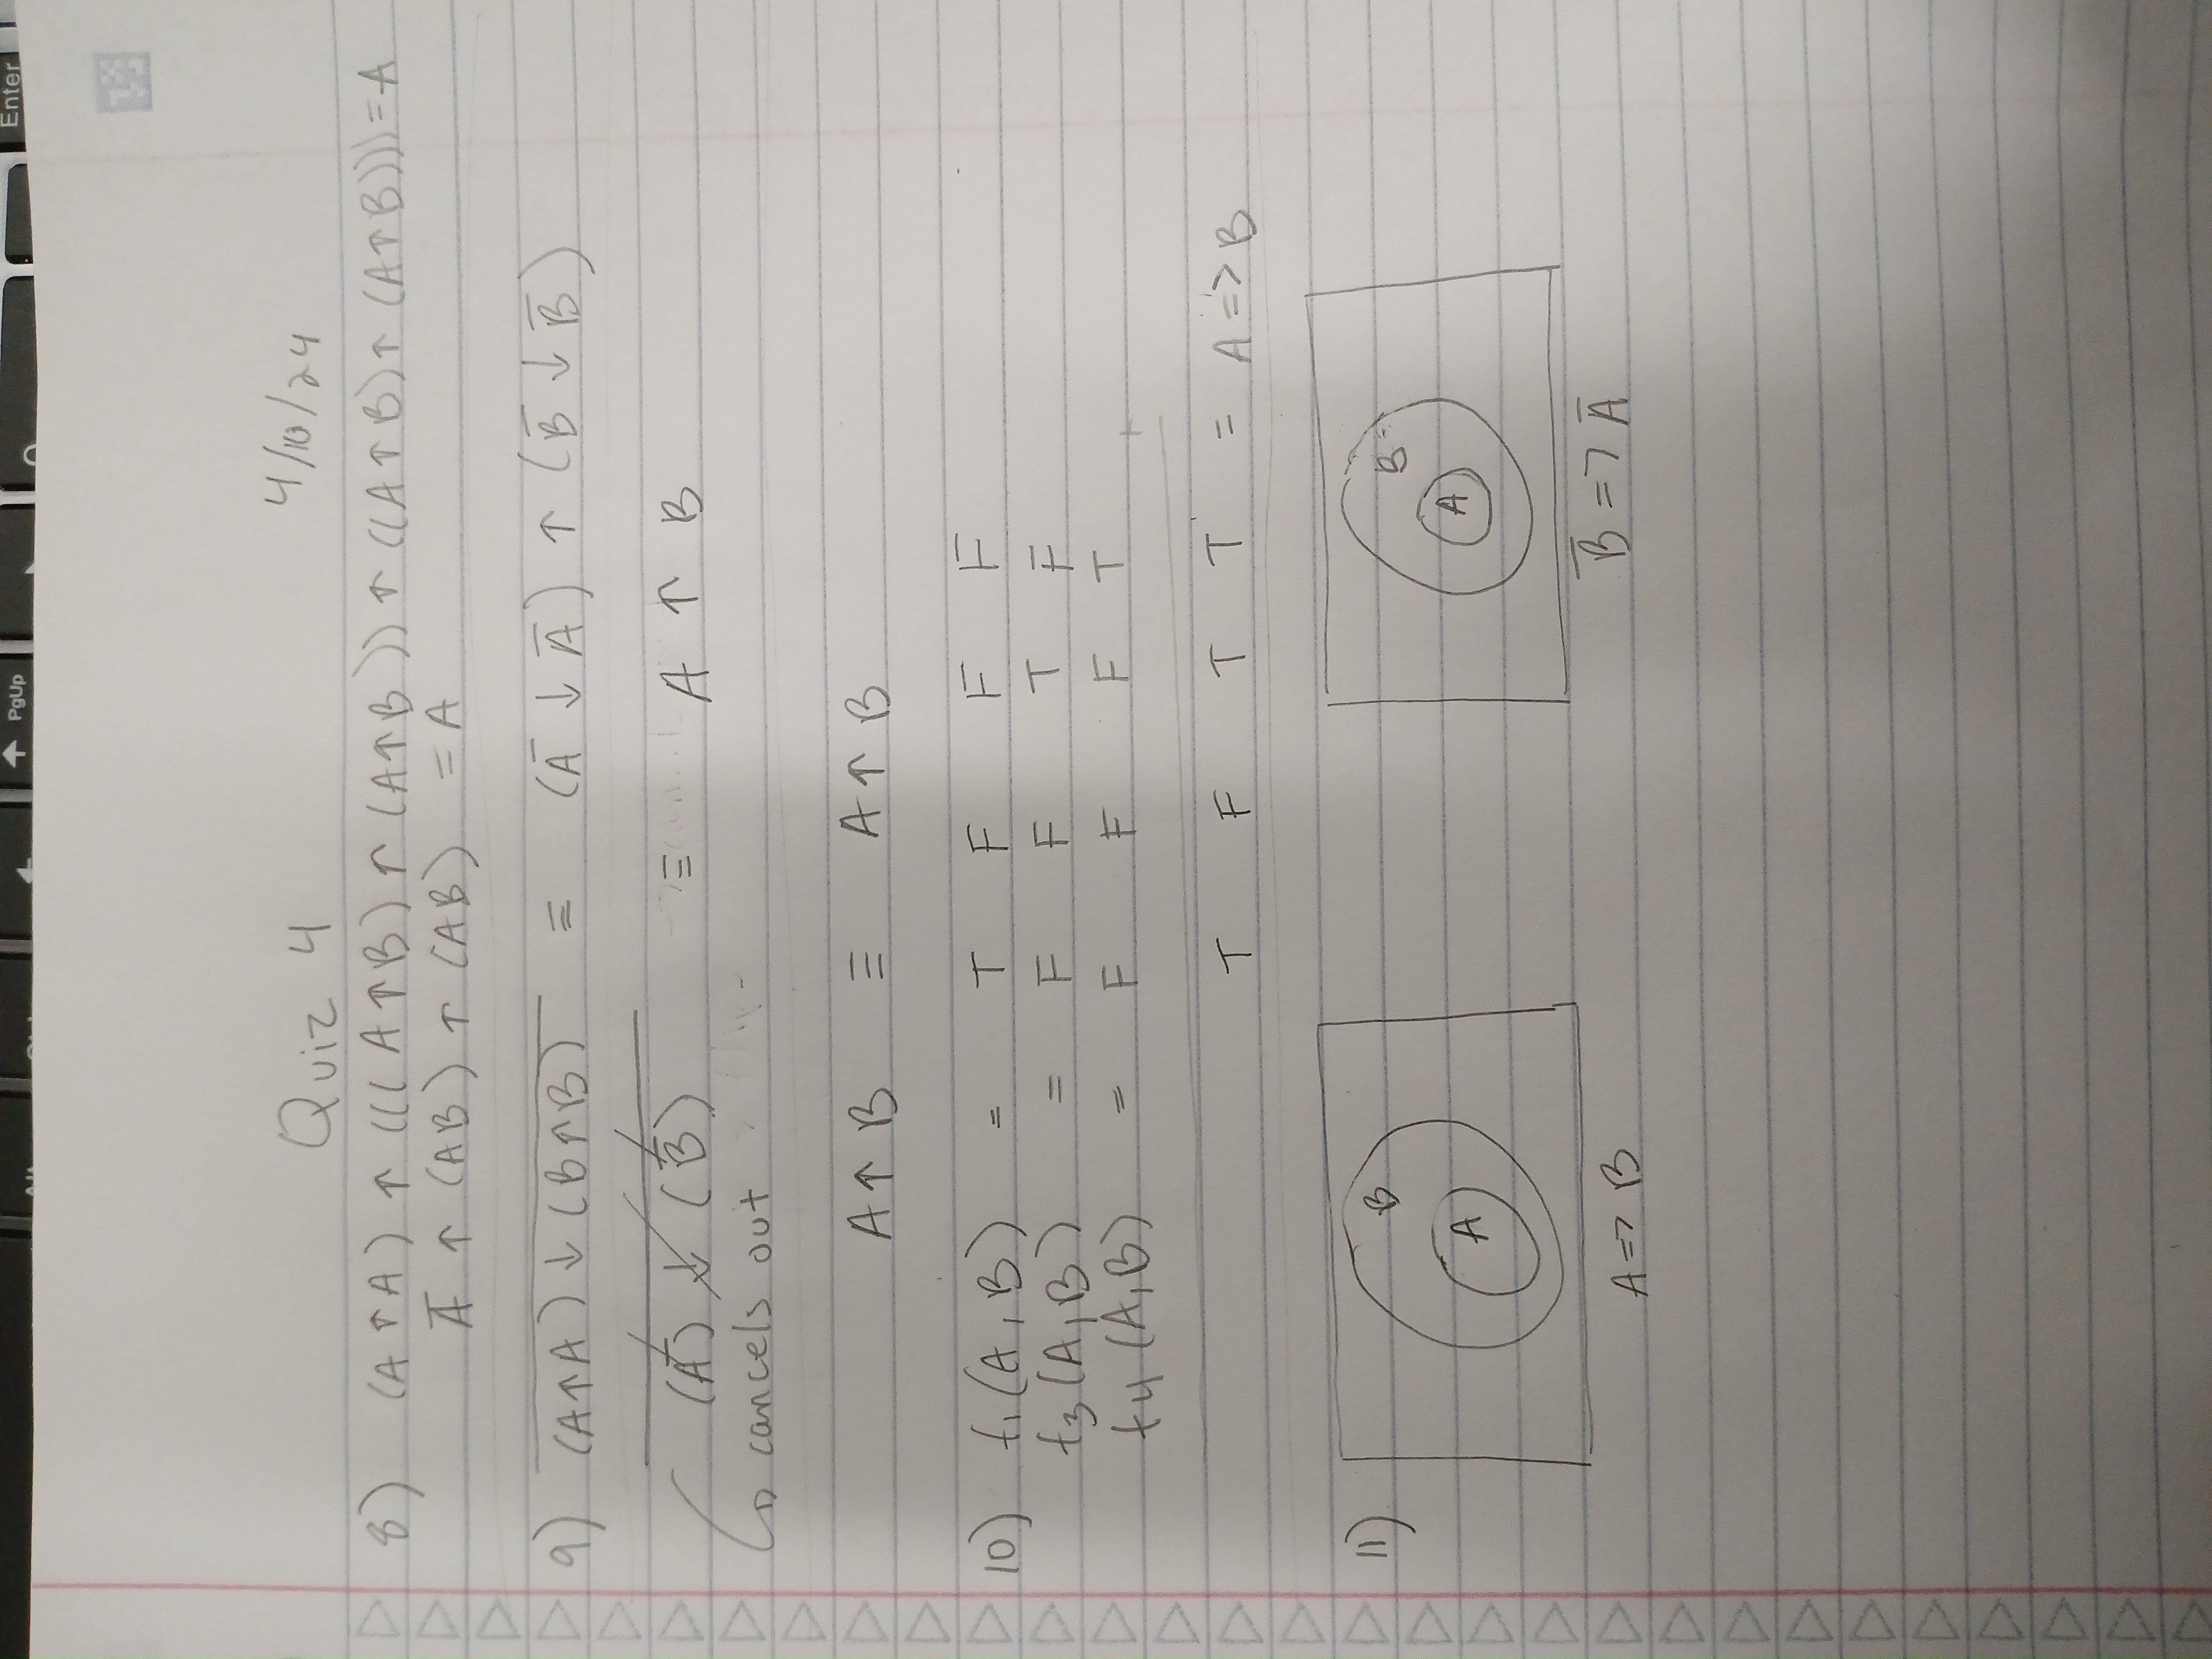 Enter
PgUp
Quiz 4 4/10/24
8) (A ↑ A) ↑ (((A ↑ B) ↑ (A ↑ B)) ↑ ((A ↑ B) ↑ (A ↑ B))) = A
A̅ ↑ (AB) ↑ (AB) = A
9) \overline{(A↑A) ↓ (B↑B)} ≡ (A̅ ↓ A̅) ↑ (B̅ ↓ B̅)
\overline{(A̅) ↓ (B̅)} ≡ A ↑ B
↳ cancels out
A ↑ B ≡ A ↑ B
10) f₁(A, B) = T F F F
f₃(A, B) = F F T F
f₄(A, B) = F F F T
T F T T = A => B
11) B B
A A
A => B B̅ => A̅